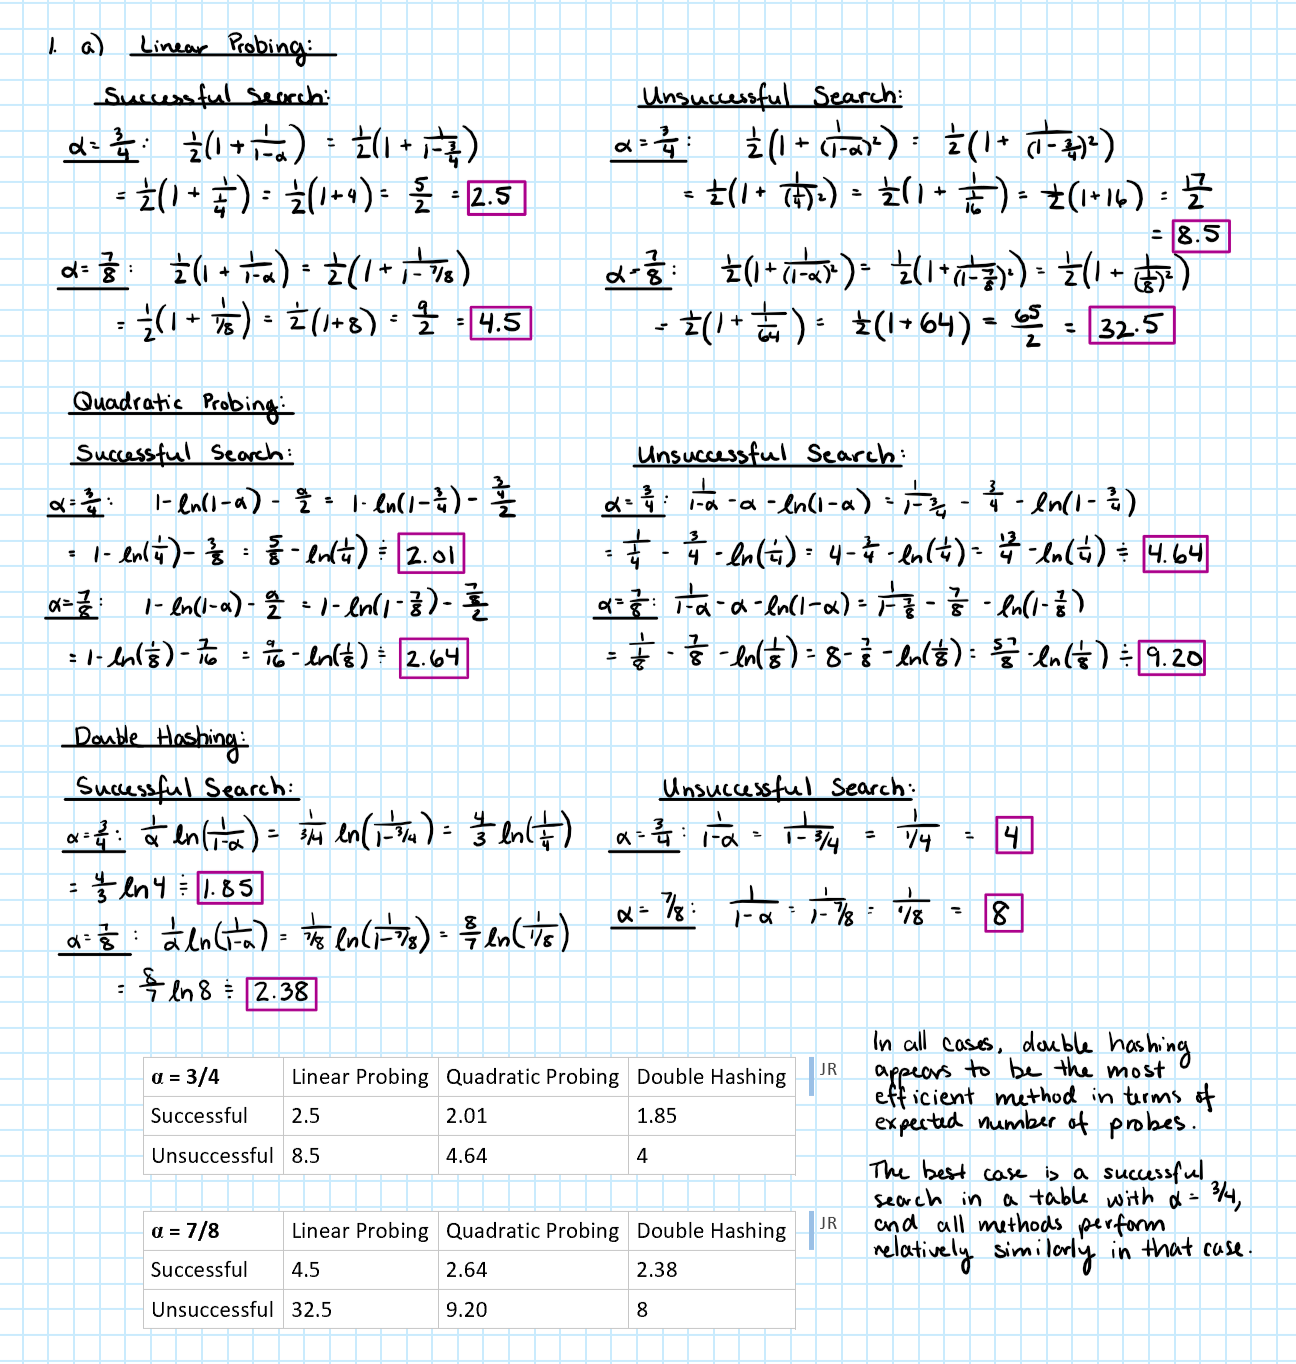 1. a) Linear Probing:
Successful Search:
α = 3/4: 1/2(1 + 1/(1-α)) = 1/2(1 + 1/(1-3/4))
= 1/2(1 + 1/(1/4)) = 1/2(1+4) = 5/2 = 2.5
α = 7/8: 1/2(1 + 1/(1-α)) = 1/2(1 + 1/(1-7/8))
= 1/2(1 + 1/(1/8)) = 1/2(1+8) = 9/2 = 4.5
Unsuccessful Search:
α = 3/4: 1/2(1 + 1/(1-α)²) = 1/2(1 + 1/(1-3/4)²)
= 1/2(1 + 1/(1/4)²) = 1/2(1 + 1/(1/16)) = 1/2(1+16) = 17/2
= 8.5
α = 7/8: 1/2(1 + 1/(1-α)²) = 1/2(1 + 1/(1-7/8)²) = 1/2(1 + 1/(1/8)²)
= 1/2(1 + 1/(1/64)) = 1/2(1+64) = 65/2 = 32.5
Quadratic Probing:
Successful Search:
α = 3/4: 1-ln(1-α) - α/2 = 1-ln(1-3/4) - (3/4)/2
= 1-ln(1/4) - 3/8 = 5/8 - ln(1/4) ≑ 2.01
α = 7/8: 1-ln(1-α) - α/2 = 1-ln(1-7/8) - (7/8)/2
= 1-ln(1/8) - 7/16 = 9/16 - ln(1/8) ≑ 2.64
Unsuccessful Search:
α = 3/4: 1/(1-α) - α - ln(1-α) = 1/(1-3/4) - 3/4 - ln(1-3/4)
= 1/(1/4) - 3/4 - ln(1/4) = 4 - 3/4 - ln(1/4) = 13/4 - ln(1/4) ≑ 4.64
α = 7/8: 1/(1-α) - α - ln(1-α) = 1/(1-7/8) - 7/8 - ln(1-7/8)
= 1/(1/8) - 7/8 - ln(1/8) = 8 - 7/8 - ln(1/8) = 57/8 - ln(1/8) ≑ 9.20
Double Hashing:
Successful Search:
α = 3/4: 1/α ln(1/(1-α)) = 1/(3/4) ln(1/(1-3/4)) = 4/3 ln(1/(1/4))
= 4/3 ln4 ≑ 1.85
α = 7/8: 1/α ln(1/(1-α)) = 1/(7/8) ln(1/(1-7/8)) = 8/7 ln(1/(1/8))
= 8/7 ln8 ≑ 2.38
Unsuccessful Search:
α = 3/4: 1/(1-α) = 1/(1-3/4) = 1/(1/4) = 4
α = 7/8: 1/(1-α) = 1/(1-7/8) = 1/(1/8) = 8
α = 3/4 Linear Probing Quadratic Probing Double Hashing
Successful 2.5 2.01 1.85
Unsuccessful 8.5 4.64 4
JR
α = 7/8 Linear Probing Quadratic Probing Double Hashing
Successful 4.5 2.64 2.38
Unsuccessful 32.5 9.20 8
JR
In all cases, double hashing
appears to be the most
efficient method in terms of
expected number of probes.
The best case is a successful
search in a table with α = 3/4,
and all methods perform
relatively similarly in that case.